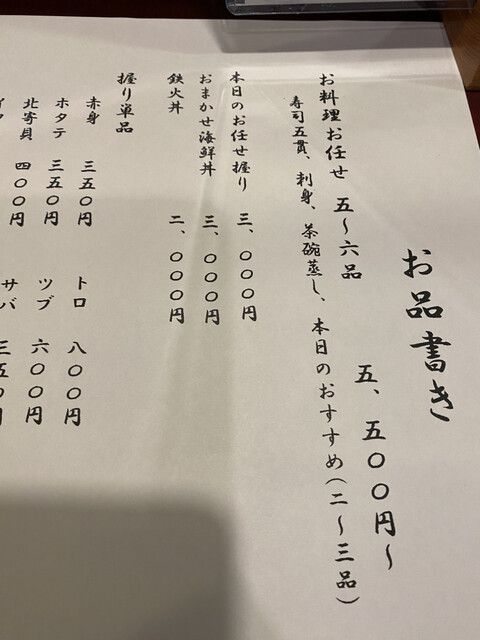 お品書き
お料理お任せ 五〜六品 五、五〇〇円〜
寿司五貫、刺身、茶碗蒸し、本日のおすすめ(二〜三品)
本日のお任せ握り 三、〇〇〇円
おまかせ海鮮丼 三、〇〇〇円
鉄火丼 二、〇〇〇円
握り単品
赤身 三五〇円 トロ 八〇〇円
ホタテ 三五〇円 ツブ 六〇〇円
北寄貝 四〇〇円 サバ 三五〇円